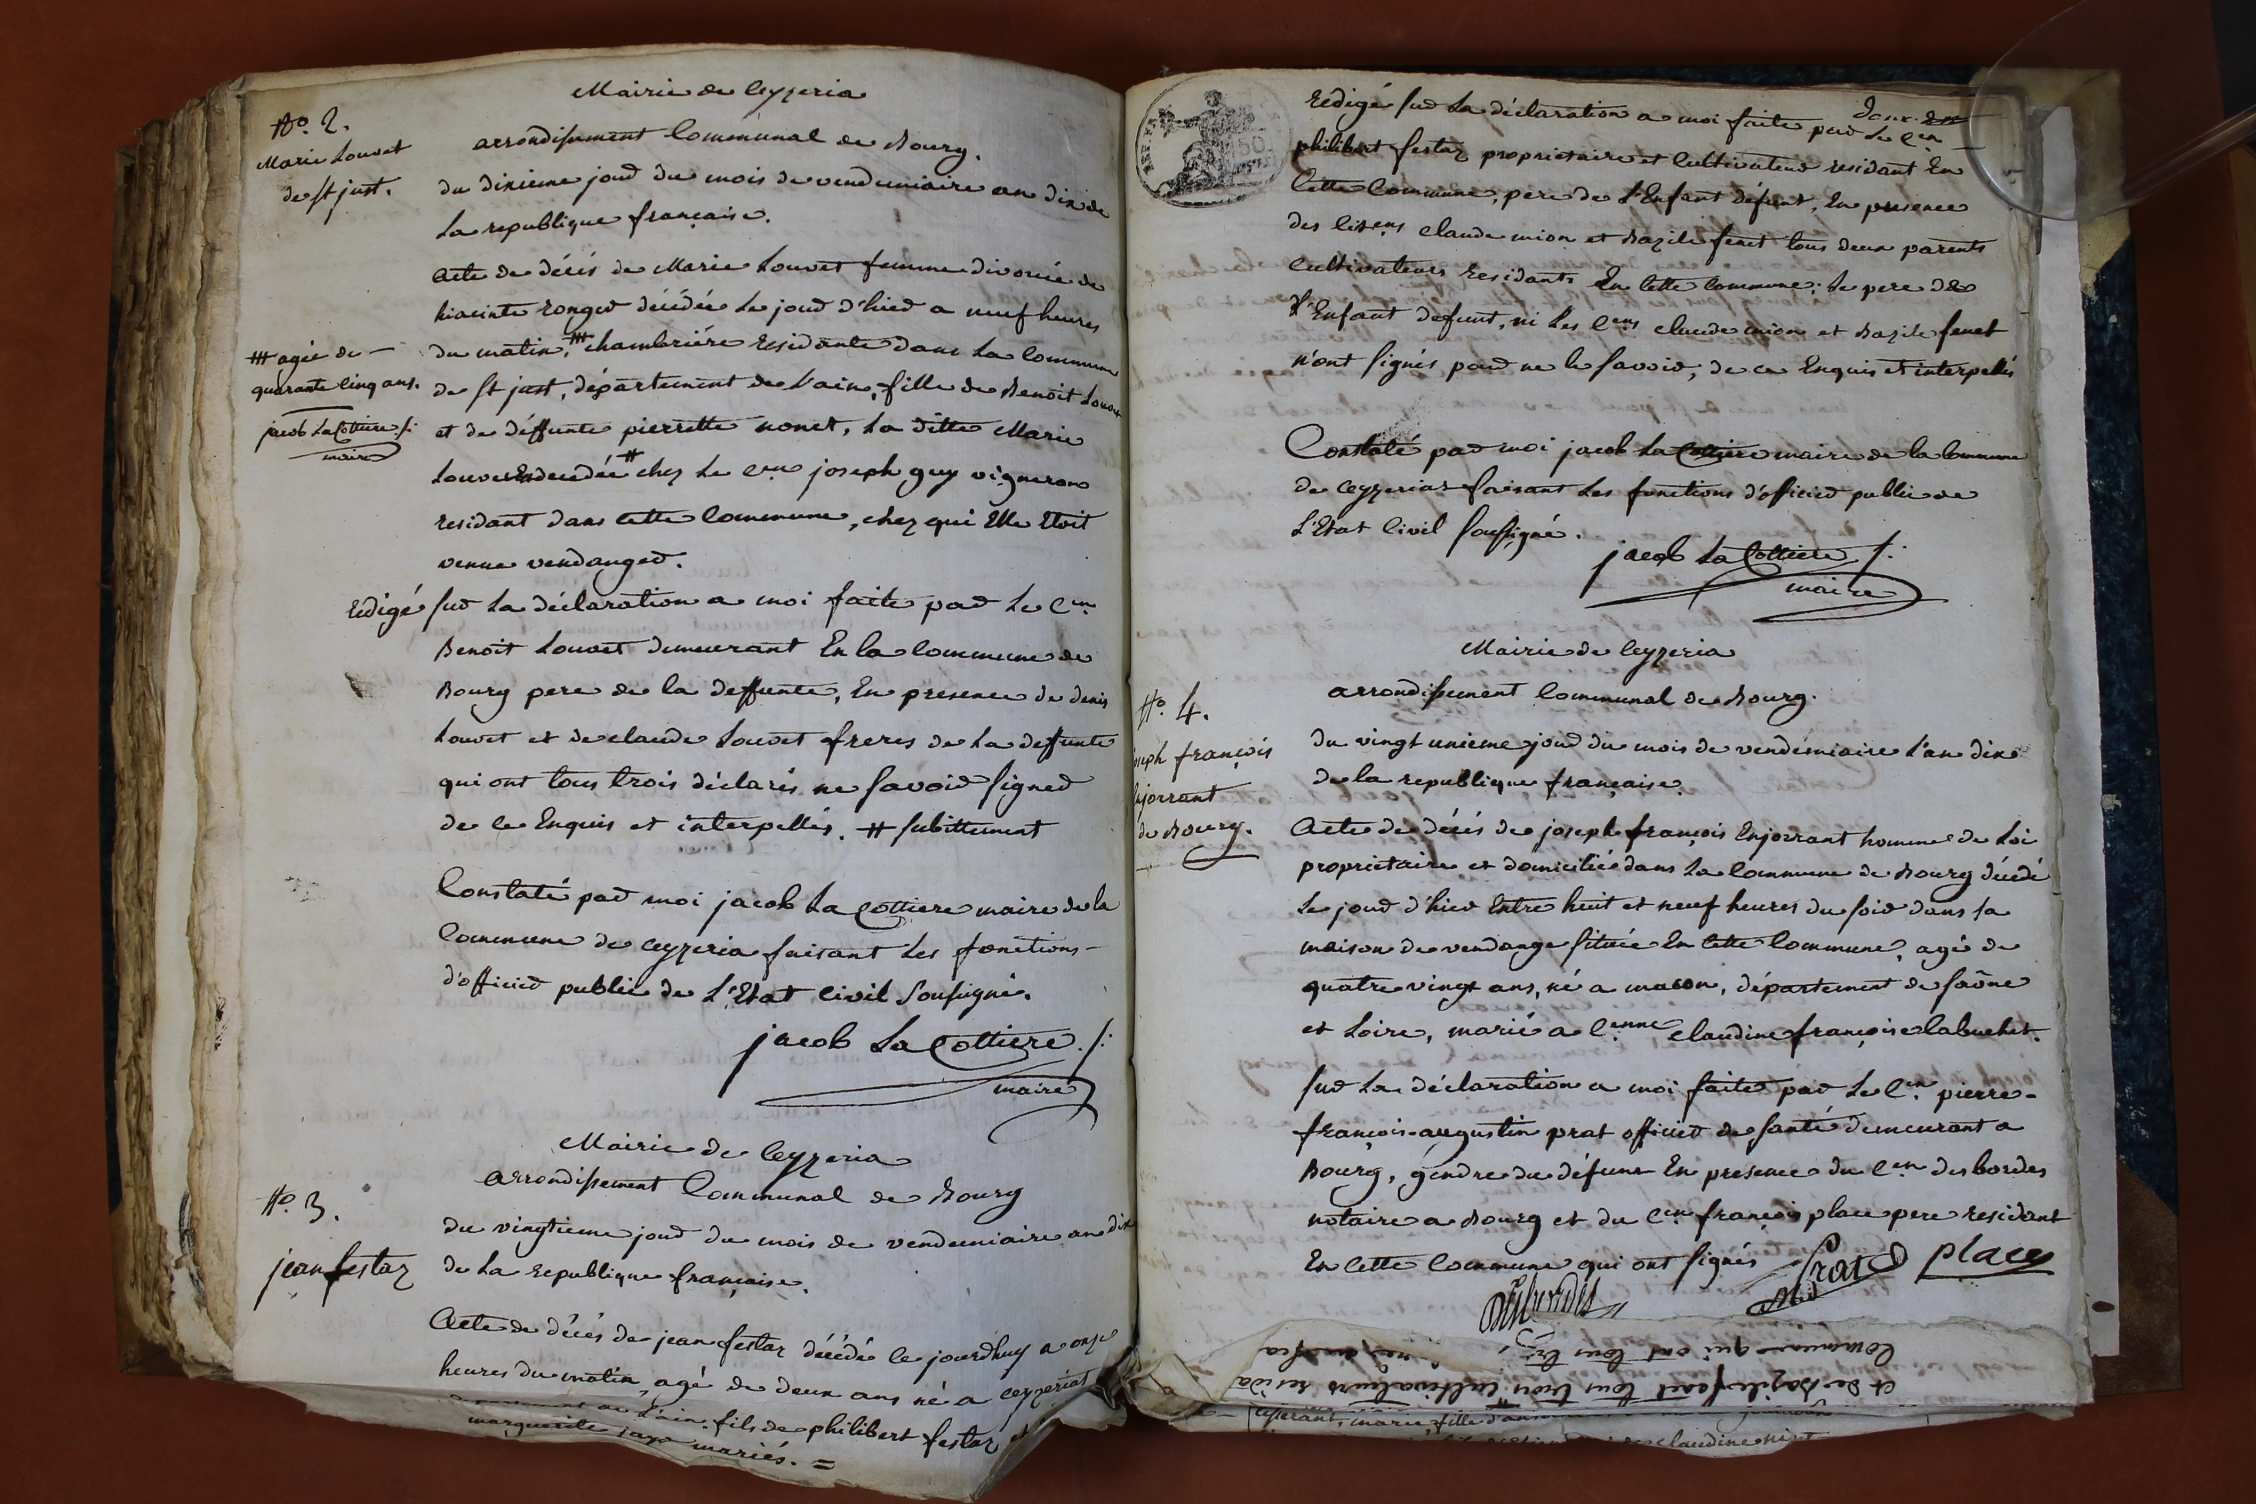 Mairie de Ceyzeria
No. 2.
arrondissement Communal de Bourg.
Marie Louvet
de st just.
du dixieme jour du mois de vendemiaire an dix de
la republique française.
acte de décés de Marie Louvet femme divorcée de
hiacinte ronger décédée le jour d'hier a neuf heures
du matin, # chambriére residante dans la commune
# agée de
quarante cinq ans.
jacob La Cottiere
maire
de st just, département de l'ain, fille de Benoit Louvet
et de déffunte pierrette nonet, la ditte Marie
Louvet decedée # chez le cen joseph guy vigneron
residant dans cette commune, chez qui Elle Etoit
venue vendanger.
Redigé sur la déclaration a moi faite par le Cen
Benoit Louvet demeurant En la commune de
Bourg pere de la deffunte, En presence de denis
Louvet et de claude Louvet freres de la deffunte
qui ont tous trois déclarés ne savoir signer
de ce Enquis et interpellés. # subittement
Constaté par moi jacob La Cottiere maire de la
Commune de ceyzeria faisant les fonctions
d'officier public de L'Etat civil soussigné.
jacob La Cottiere
maire
Mairie de Ceyzeria
arrondissement Communal de Bourg
No. 3.
jean festaz
du vingtieme jour du mois de vendemiaire an dix
de la republique française.
Acte de décés de jean festaz décédé le jourdhuy a onze
heures du matin, agé de deux ans né a ceyzeriat
departement de l'ain. fils de philibert festaz et
marguerite jay mariés. =
Redigé sur la déclaration a moi faite par le Cen
philibert festaz proprietaire et cultivateur residant En
cette commune, pere de L'Enfant défunt, En presence
des citens claude mion et Bazile feret tous deux parents
cultivateurs residants En cette commune: le pere de
L'Enfant defunt, ni les Cens claude mion et Bazile feret
n'ont signés pour ne le savoir, de ce Enquis et interpellés
Constaté par moi jacob La Cottiere maire de la commune
de ceyzeriat faisant les fonctions d'officier public de
L'Etat Civil soussigné.
jacob La Cottiere
maire
Mairie de Ceyzeria
arrondissement Communal de Bourg.
No. 4.
joseph françois
Enjorrant
de Bourg.
du vingt unieme jour du mois de vendémiaire l'an dix
de la republique française.
Acte de décés de joseph françois Enjorrant homme de Loi
proprietaire et domicilié dans la commune de Bourg décédé
le jour d'hier Entre huit et neuf heures du soir dans sa
maison de vendange située En cette commune, agé de
quatre vingt ans, né a macon, département de saône
et Loire, marié a Cenne claudine françoise labuchet.
sur la déclaration a moi faite par le Cen pierre-
françois-augustin prat officier de santé demeurant a
Bourg, gendre du défunt En presence du Cen desbordes
notaire a Bourg et du Cen françois place pere residant
En cette commune qui ont signés
Prat
place
Desbordes
commune qui ont tous
et de Bazile feret tous trois cultivateurs resida
marie, fille
claudine